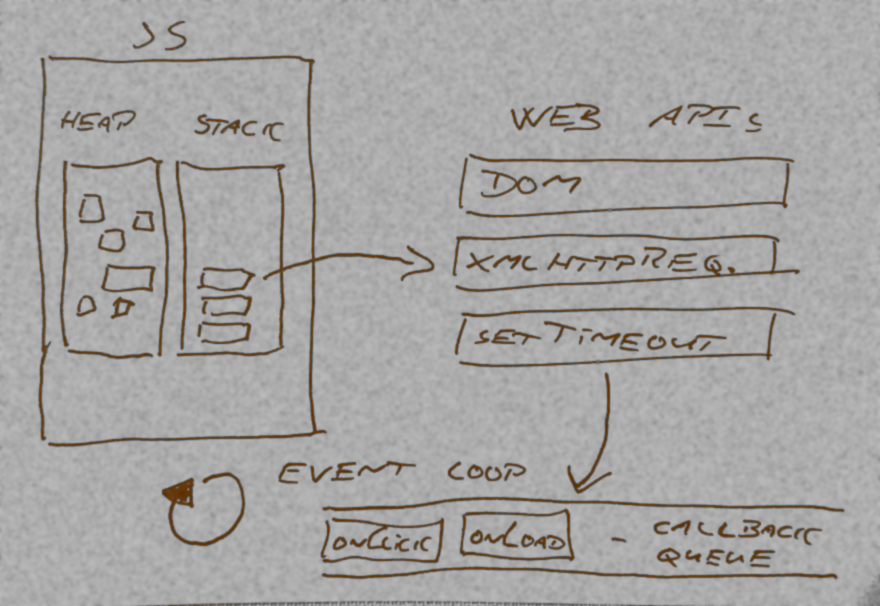 JS
HEAP STACK
WEB APIs
DOM
XMLHTTPREQ.
SETTIMEOUT
EVENT LOOP
ONCLICK ONLOAD - CALLBACK
QUEUE